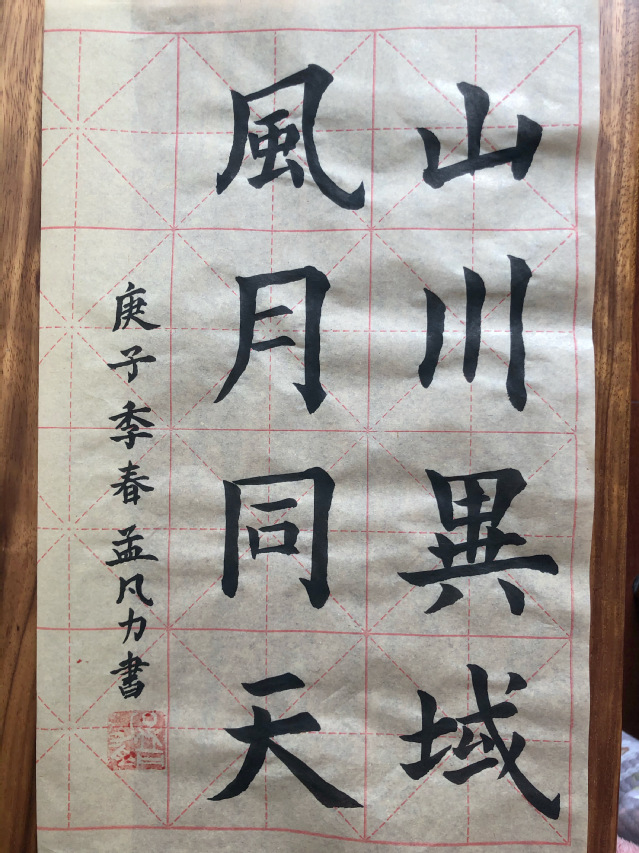 山川異域
風月同天
庚子季春孟凡力書